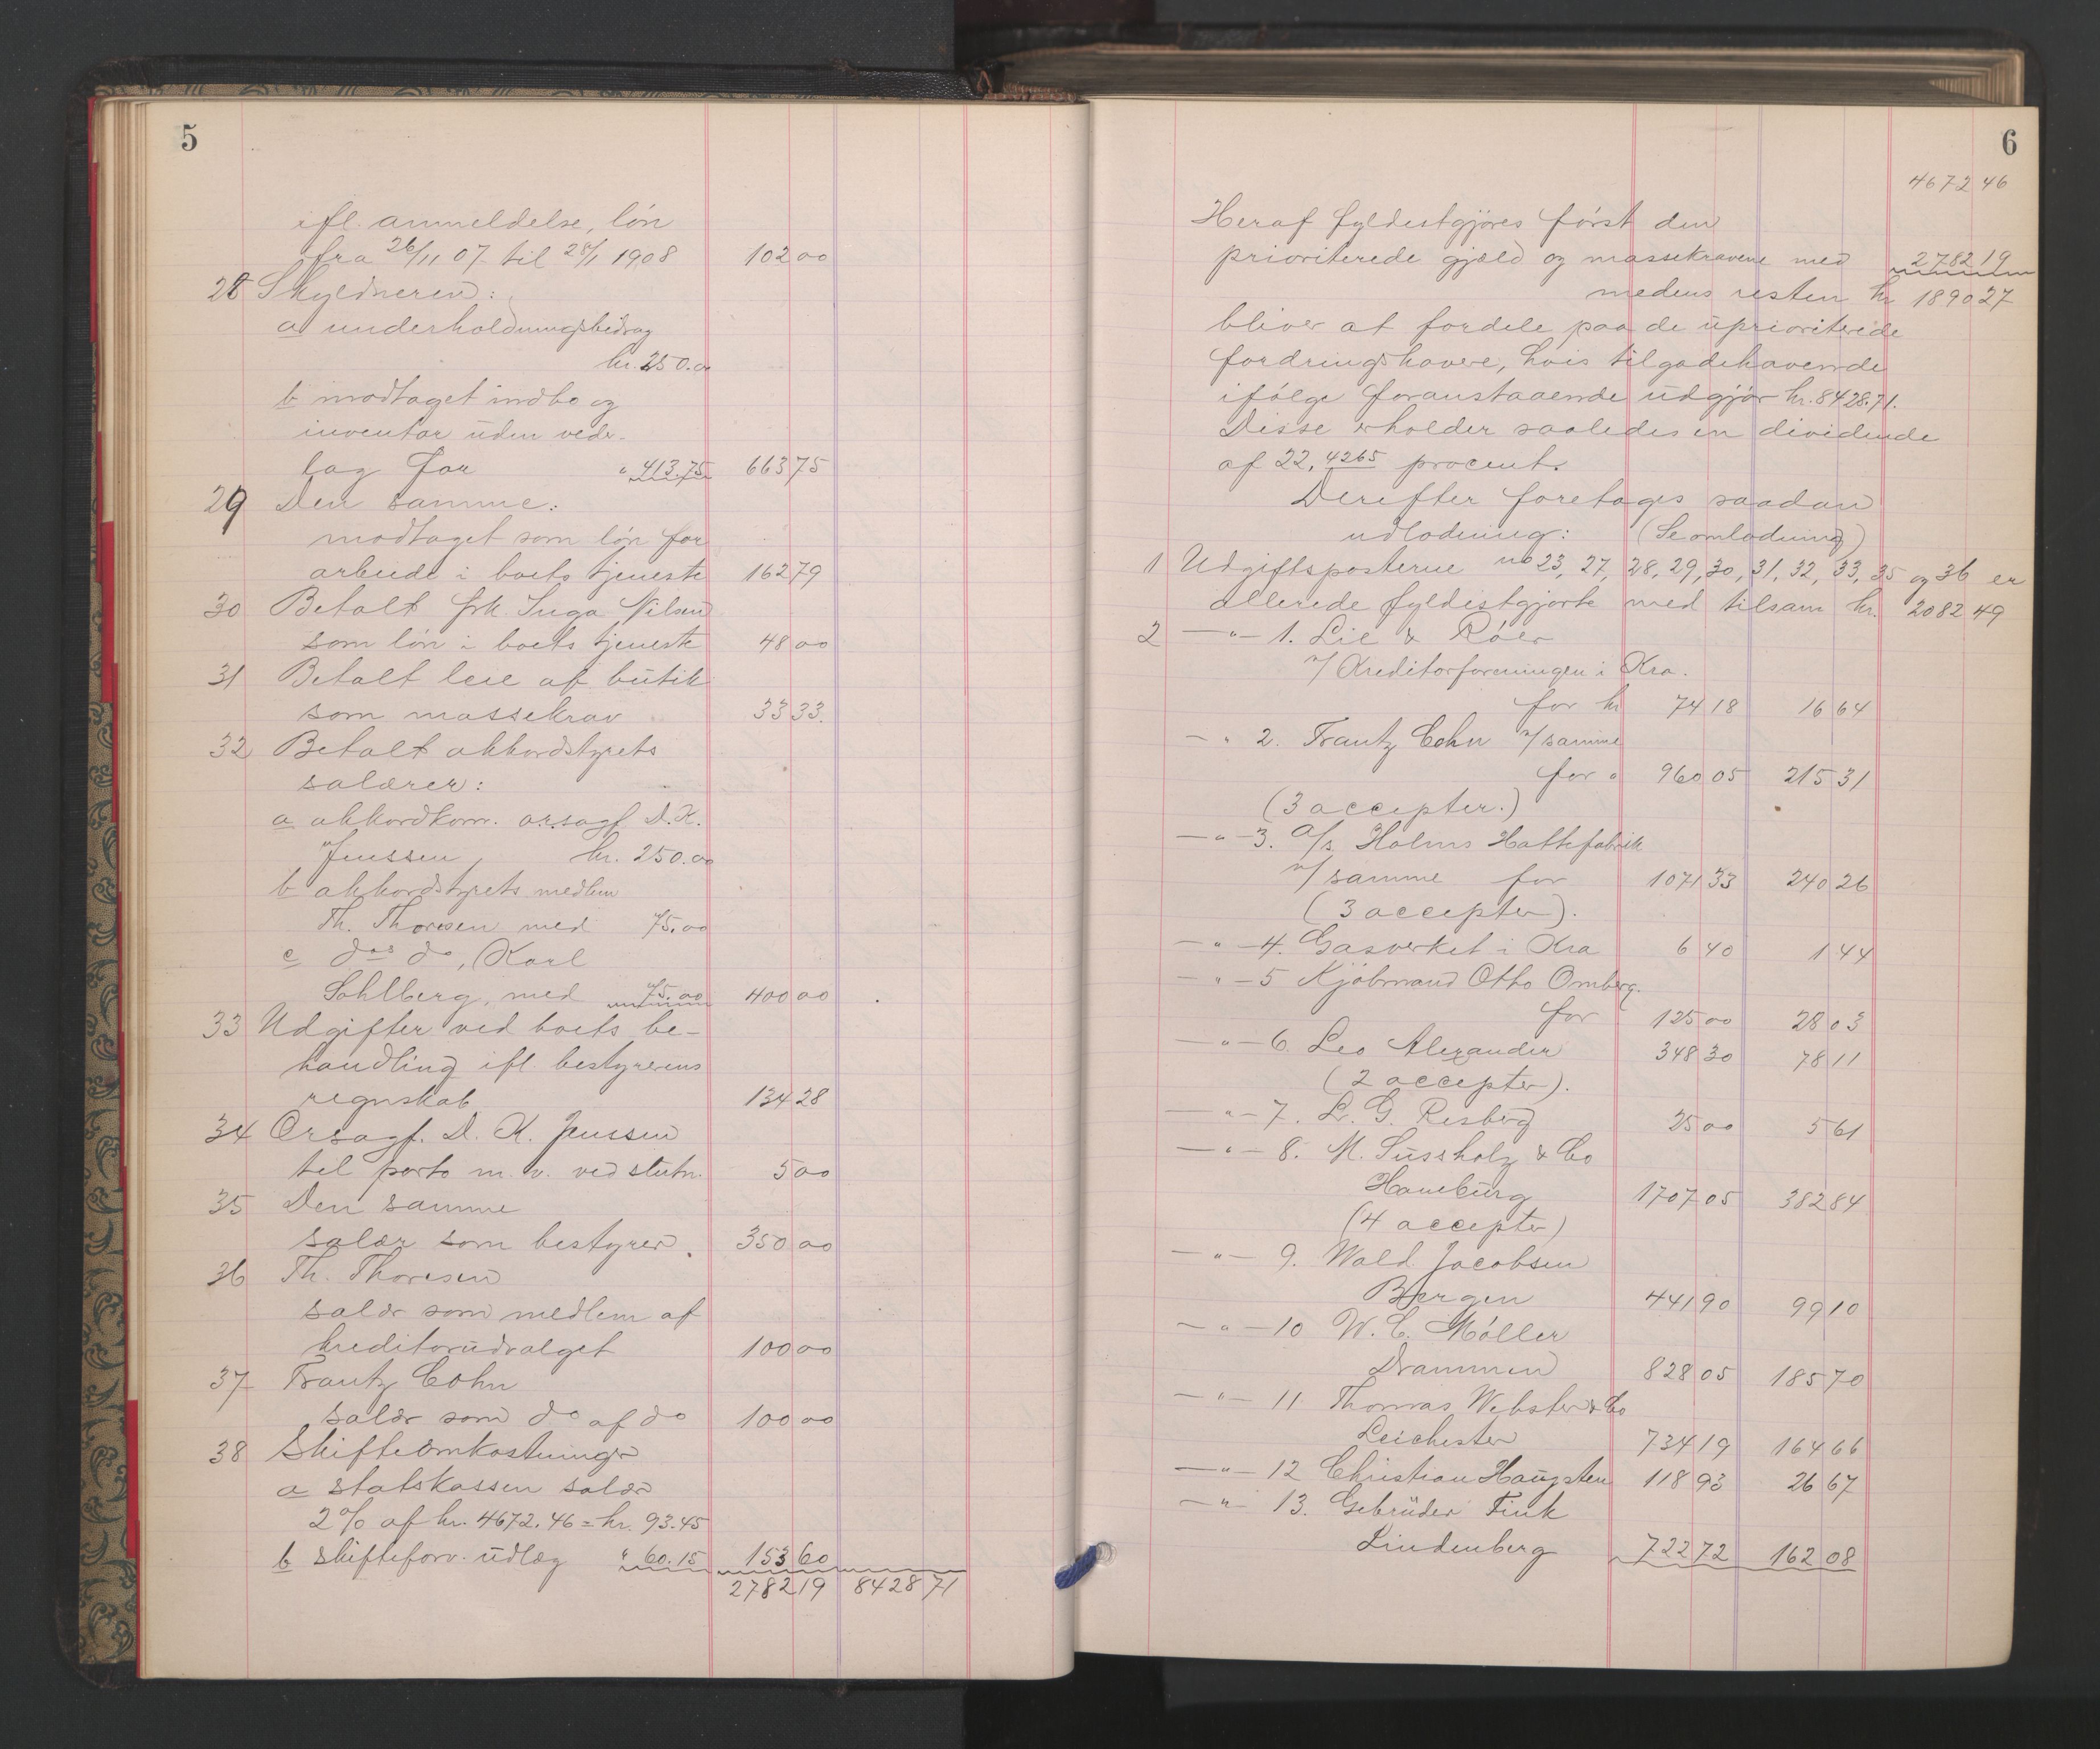 5
ifl. anmeldelse, løn
fra 26/11 07 til 28/1 1908 102 00
28 Skyldneren:
a underholdningsbidrag
kr. 250.00
b modtaget indbo og
inventar uden veder-
lag for " 413.75 663 75
29 Den samme:
modtaget som løn for
arbeide i boets tjeneste 162 79
30 Betalt frk. Inga Nilsen
som løn i boets tjeneste 48 00
31 Betalt leie af butik
som massekrav 33 33.
32 Betalt akkordstyrets
salærer:
a akkordkom. orsagf. D. K.
Jenssen, kr. 250.00
b akkordstyrets medlem
Th. Thoresen med 75.00
c dos do, Karl
Sohlberg, med 75.00 400 00
33 Udgifter ved boets be-
handling ifl. bestyrerens
regnskab 134 28
34 Orsagf. D. K. Jenssen
til porto m. v. ved slutn. 5 00
35 Den samme
salær som bestyrer. 350 00
36 Th. Thoresen
salær som medlem af
kreditorudvalget 100 00
37 Frantz Cohn
salær som do af do 100 00
38 Skifteomkostninger
a statskassen salær
2 % af kr. 4672.46 = kr. 93.45
b skifteforv. udlæg " 60.15 153 60
2782 19 8428 71
6
4672 46
Heraf fyldestgjøres først den
prioriterede gjæld og massekravene med 2782 19
medens resten kr 1890 27
bliver at fordele paa de uprioriterede
fordringshavere, hvis tilgodehavende
ifølge foranstaaende udgjør kr. 8428.71.
Disse erholder saaledes en dividende
af 22,4265 procent.
Derefter foretages saadan
udlodning: (Se omlodning)
1 Udgiftsposterne no 23, 27, 28, 29, 30, 31, 32, 33, 35 og 36 er
allerede fyldestgjorte med tilsam kr. 2082 49
2 —"— 1. Lie & Róer
v/ Kreditorforeningen i Kra.
for kr 74 18 16 64
—" 2. Frantz Cohn v/ samme
for " 960 05 215 31
(3 accepter.)
—"—3. A/s Holms Hattefabrik
v/ samme for 1071 33 240 26
(3 accepter).
—"—4. Gasverket i Kra 6 40 1 44
—"—5 Kjøbmand Otto Omberg.
for 125 00 28 03
—"—6. Leo Alexander 348 30 78 11
(2 accepter).
—"—7. L. G. Resberg 25 00 5 61
—"—8. M. Sussholz & Co
Hamburg 1707 05 382 84
(4 accepter)
—"— 9. Wald. Jacobsen
Bergen 441 90 99 10
—"—10 W. C. Møller
Drammen 828 05 185 70
—"— 11 Thomas Webster & Co
Leichester 734 19 164 66
—"—12 Christian Haugsten 118 93 26 67
—"— 13. Gebrüder Fink
Lindenberg 722 72 162 08